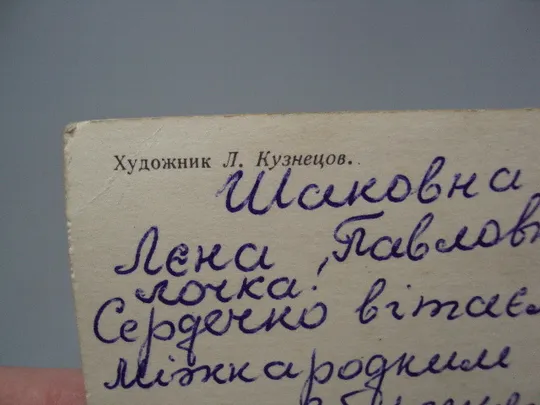 Художник Л. Кузнецов.
Шаковна
Лєна, Павлов
лочка!
Сердечко вітаєм
міжнародним